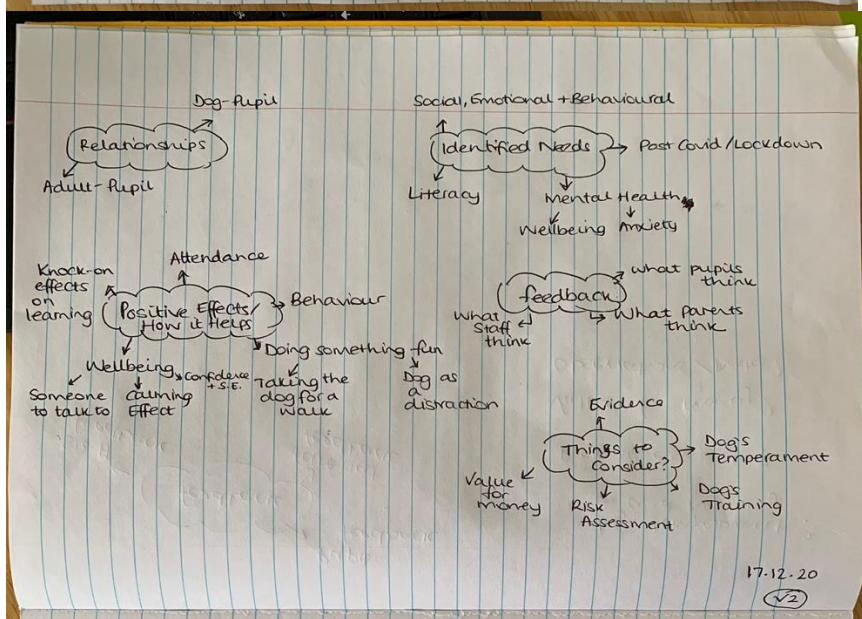 Dog-Pupil
Relationships
Adult-Pupil
Social, Emotional + Behavioural
Identified Needs
Post Covid/Lockdown
Literacy
Mental Health
Wellbeing
Anxiety
Attendance
Knock-on
effects
on
learning
Positive Effects/
How it Helps
Behaviour
Wellbeing
Confidence
+ S.E.
Someone
to talk to
Calming
Effect
Doing something fun
Taking the
dog for a
walk
Dog as
a
distraction
what pupils
think
feedback
What
Staff
think
What Parents
think
Evidence
Things to
Consider?
Dog's
Temperament
Value
for
money
Risk
Assessment
Dog's
Training
17.12.20
V2